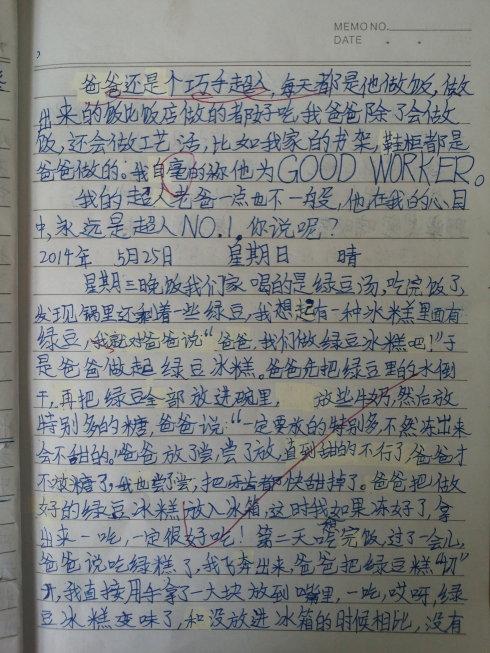 MEMO NO.
DATE
爸爸还是个巧手超人,每天都是他做饭,做
出来的饭比饭店做的都好吃,我爸爸除了会做
饭,还会做工艺活,比如我家的书架,鞋柜都是
爸爸做的。我自毫的称他为GOOD WORKER。
我的超人老爸一点也不一般,他在我的心目
中,永远是超人NO.1。你说呢?
2014年 5月25日 星期日 晴
星期三晚饭我们家喝的是绿豆汤,吃完饭了,
发现锅里还剩着一些绿豆,我想起有一种冰糕里面有
绿豆,我就对爸爸说“爸爸,我们做绿豆冰糕吧!”于
是爸爸做起绿豆冰糕。爸爸先把绿豆里的水倒
干,再把绿豆全部放进碗里, 放些牛奶,然后放
特别多的糖,爸爸说:“一定要放的特别多,不然冻出来
会不甜的。”爸爸放了尝,尝了放,直到甜的不行了,爸爸才
不放糖了,我也尝了尝,把牙齿都快甜掉了。爸爸把做
好的绿豆冰糕放入冰箱,这时我如果冻好了,拿
出来一吃,一定很好吃!第二天吃完饭,过了一会儿,
爸爸说吃绿糕了,我飞奔出来,爸爸把绿豆糕“切”
开,我直接用手拿了一大块放到嘴里,一吃,哎呀,绿
豆冰糕变味了,和没放进冰箱的时候相比,没有